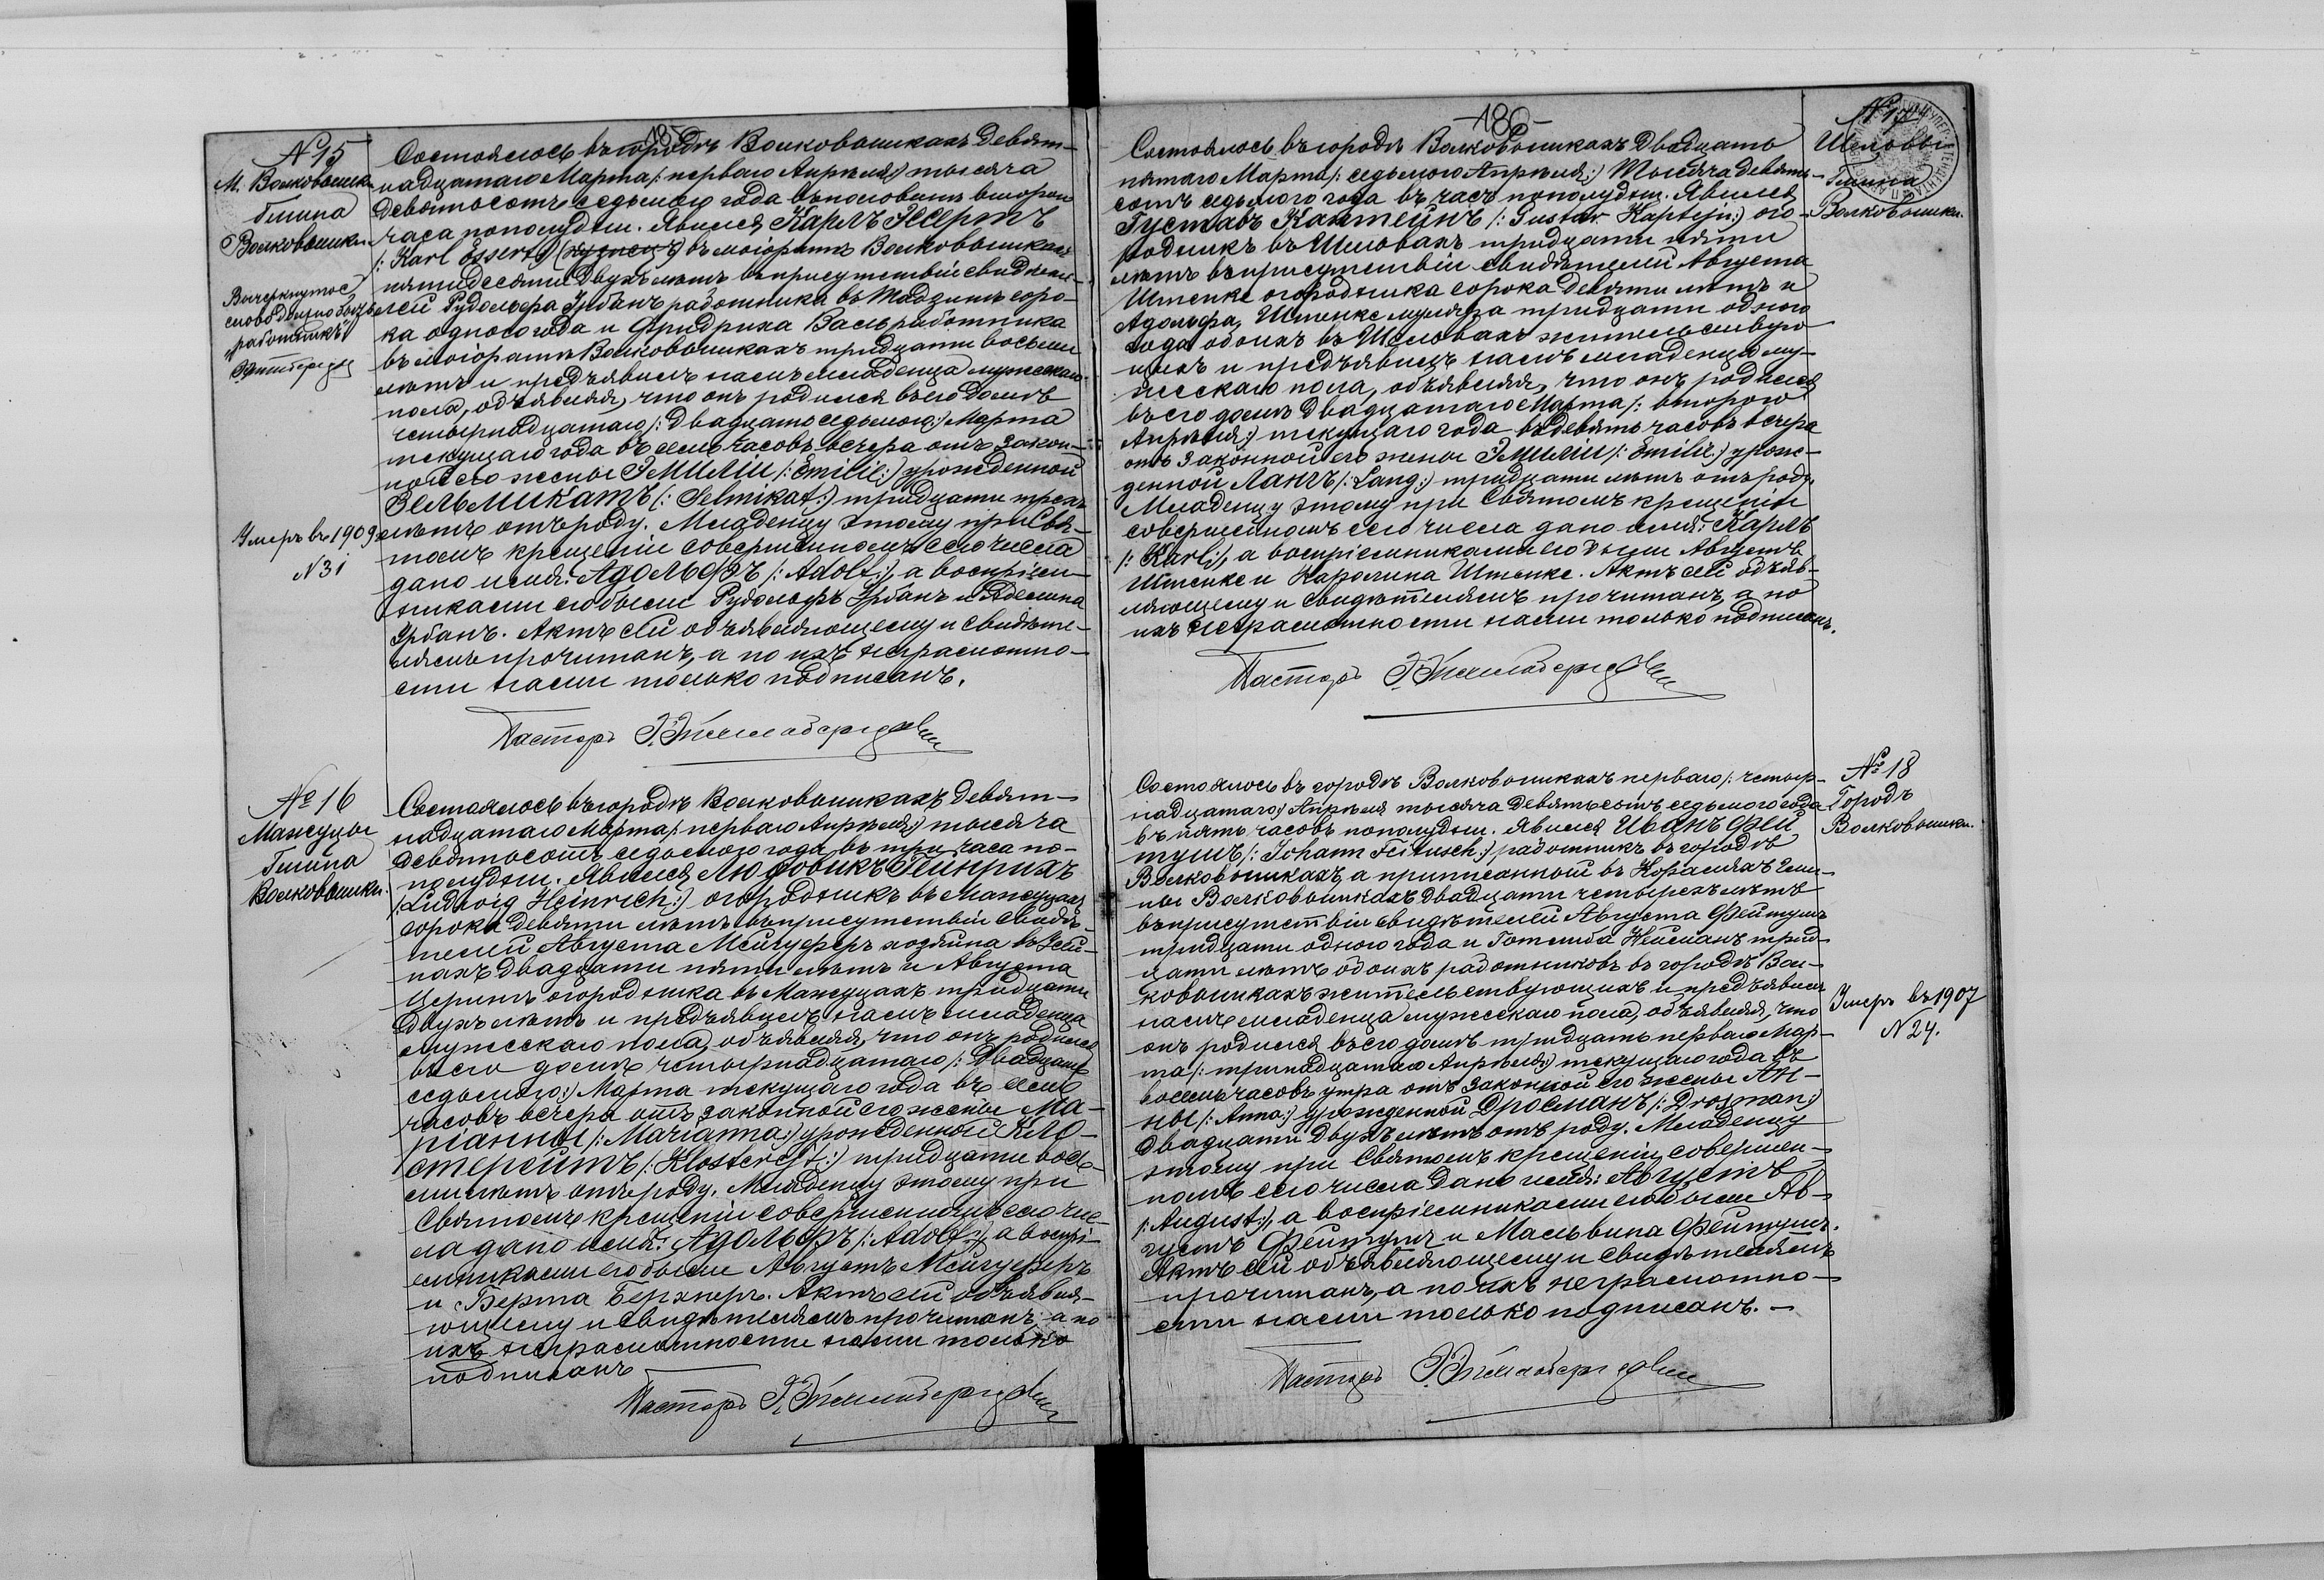 185
№15
М. Волковышки
Гмина
Волковышки.
Вычеркнутое
слово должно быть
„работникъ“
Умеръ въ 1909
№31
Состоялось въ городѣ Волковышкахъ девят-
надцатаго Марта /: перваго Апрѣля :/ тысяча
девятьсотъ седьмого года въ половинѣ второго
часа пополудни. Явился Карлъ Эссертъ
/: Karl Essert :/ (кузнецъ) въ маіоратѣ Волковышкахъ
пятидесяти двухъ лѣтъ въ присутствіи свидѣте-
лей Рудольфа Урбанъ работника въ соро-
ка одного года и Фридриха Валь работника
въ маіоратѣ Волковышкахъ тридцати восьми
лѣтъ и предъявилъ намъ младенца мужескаго
пола, объявляя, что онъ родился въ его домѣ
четырнадцатаго /: двадцать седьмого :/ Марта
текущаго года въ семь часовъ вечера отъ закон-
ной его жены Эмиліи /: Emilie :/ урожденной
Зельмикатъ /: Selmikat :/ тридцати трехъ
лѣтъ отъ роду. Младенцу этому при Свя-
томъ крещеніи совершенномъ сего числа
дано имя: Адольфъ /: Adolf :/, а воспріем-
никами его были Рудольфъ Урбанъ и Аделина
Урбанъ. Актъ сей объявляющему и свидѣте-
лямъ прочитанъ, а по ихъ неграмотно-
сти нами только подписанъ.
Пасторъ
№ 16
Мажуцы
Гмина
Волковышки.
Состоялось въ городѣ Волковышкахъ девят-
надцатаго Марта /: перваго Апрѣля :/ тысяча
девятьсотъ седьмого года въ три часа по-
полудни. Явился Людовикъ Гейнрихъ
/: Ludwig Heinrich :/ огородникъ въ Мажуцахъ
сорока девяти лѣтъ въ присутствіи свидѣ-
телей Августа Мейгуферъ хозяина въ
нахъ двадцати пяти лѣтъ и Августа
огородника въ Мажуцахъ тридцати
двухъ лѣтъ и предъявилъ намъ младенца
мужескаго пола, объявляя, что онъ родился
въ его домѣ четырнадцатаго /: двадцать
седьмого :/ Марта текущаго года въ семь
часовъ вечера отъ законной его жены Ма-
ріанны /: Marianna :/ урожденной Кло-
стерейтъ /: Klostereit :/ тридцати вось-
ми лѣтъ отъ роду. Младенцу этому при
Святомъ крещеніи совершенномъ сего чис-
ла дано имя: Адольфъ /: Adolf :/, а воспрі-
емниками его были Августъ Мейгуферъ
и Берта Берхнеръ. Актъ сей объявля-
ющему и свидѣтелямъ прочитанъ, а по
ихъ неграмотности нами только
подписанъ
Пасторъ
-186-
№ 17
Шеловы
Гмина
Волковышки.
Состоялось въ городѣ Волковышкахъ двадцать
пятаго Марта /: седьмого Апрѣля :/ тысяча девять-
сотъ седьмого года въ часъ пополудни. Явился
Густавъ Каптейнъ /: Gustav Kaptejn :/ ого-
родникъ въ Шеловахъ тридцати пяти
лѣтъ въ присутствіи свидѣтелей Августа
Штепке огородника сорока девяти лѣтъ и
Адольфа Штепке муляра тридцати одного
года обоихъ въ Шеловахъ жительствую-
щихъ и предъявилъ намъ младенца му-
жескаго пола, объявляя, что онъ родился
въ его домѣ двадцатаго Марта /: второго
Апрѣля :/ текущаго года въ девять часовъ вечера
отъ законной его жены Эмиліи /: Emilie :/ урож-
денной Лангъ /: Lang :/ тридцати лѣтъ отъ роду.
Младенцу этому при Святомъ крещеніи
совершенномъ сего числа дано имя: Карлъ
/: Karl :/, а воспріемниками его были Августъ
Штепке и Каролина Штепке. Актъ сей объяв-
ляющему и свидѣтелямъ прочитанъ, а по
ихъ неграмотности нами только подписанъ.
Пасторъ
№ 18
Городъ
Волковышки.
Умеръ въ 1907
№ 24.
Состоялось въ городѣ Волковышкахъ перваго /: четыр-
надцатаго :/ Апрѣля тысяча девятьсотъ седьмого года
въ пять часовъ пополудни. Явился Иванъ Фей
тушъ /: Johann Feitusch :/ работникъ въ городѣ
Волковышкахъ, а приписанной въ гми-
ны Волковышкахъ двадцати четырехъ лѣтъ
въ присутствіи свидѣтелей Августа Фейтушъ
тридцати одного года и Готлиба Нейманъ трид-
цати лѣтъ обоихъ работниковъ въ городѣ Вол-
ковышкахъ жительствующихъ и предъявилъ
намъ младенца мужескаго пола, объявляя, что
онъ родился въ его домѣ тридцать перваго Мар-
та /: тринадцатаго Апрѣля :/ текущаго года въ
восемь часовъ утра отъ законной его жены Ан-
ны /: Anna :/ урожденной Дросманъ /: Drosman :/
двадцати двухъ лѣтъ отъ роду. Младенцу
этому при Святомъ крещеніи, совершен-
номъ сего числа дано имя: Августъ
/: August :/, а воспріемниками его были Ав-
густъ Фейтушъ и Мальвина Фейтушъ.
Актъ сей объявляющему и свидѣтелямъ
прочитанъ, а по ихъ неграмотно-
сти нами только подписанъ. -
Пасторъ